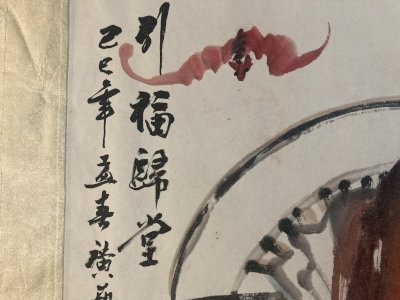 引福歸堂
己巳年孟春